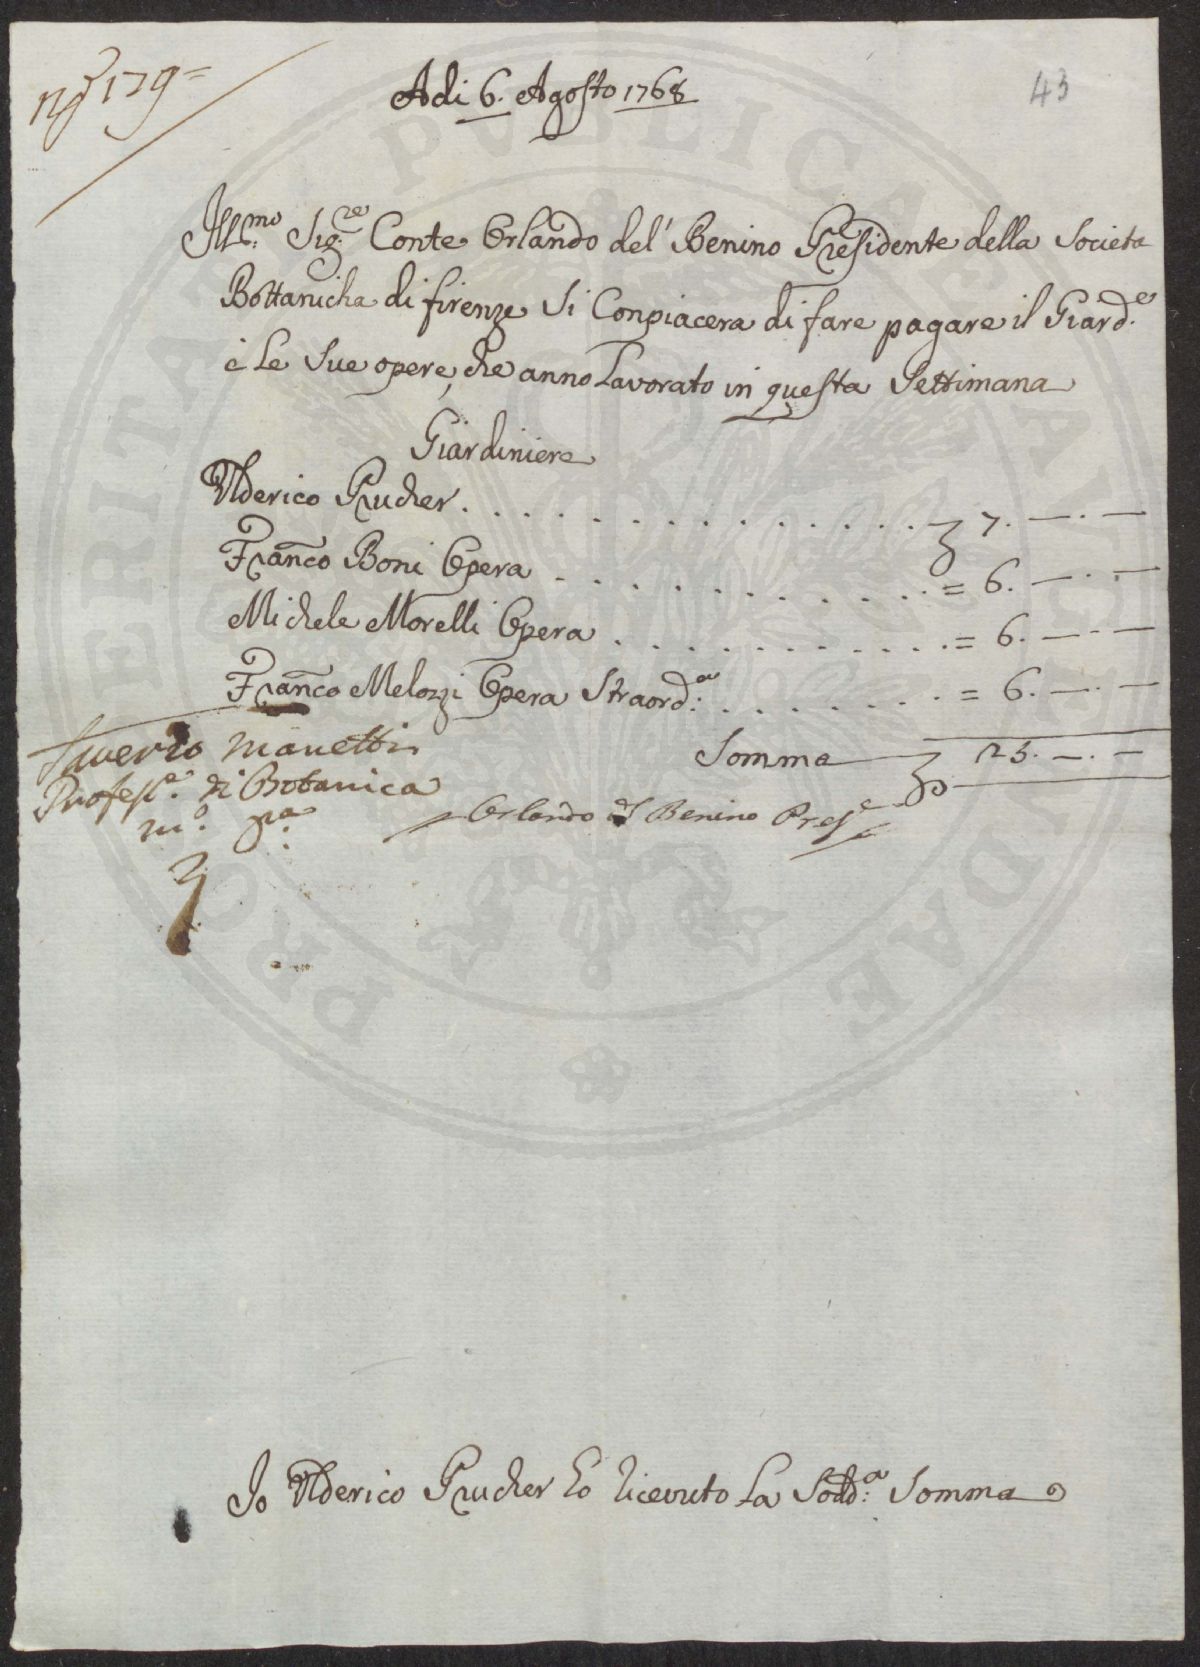 No 179=
43
Adi 6. Agosto 1768
Ill:mo Sig:re Conte Orlando del' Benino Presidente della Societa
Bottanicha di firenze Si Conpiacera di fare pagare il Giard:e
è le Sue opere, che anno Lavorato in questa Settimana
Giardiniere
Ulderico Prucher . . . . . . . . . . . . . . . . 7. — . —
Franco Boni Opera . . . . . . . . . . . = 6. — . —
Michele Morelli Opera . . . . . . . . . . = 6. — . —
Franco Melozzi Opera Straord:a . . . . . . . = 6. — . —
Somma 25. — . —
Saverio Manetti
Profess:e di Botanica
m:o p:a
Orlando del Benino Pres:e
Io Ulderico Prucher ho ricevuto la Sodd:a Somma
PROSPERITATI PUBLICAE AUGENDAE